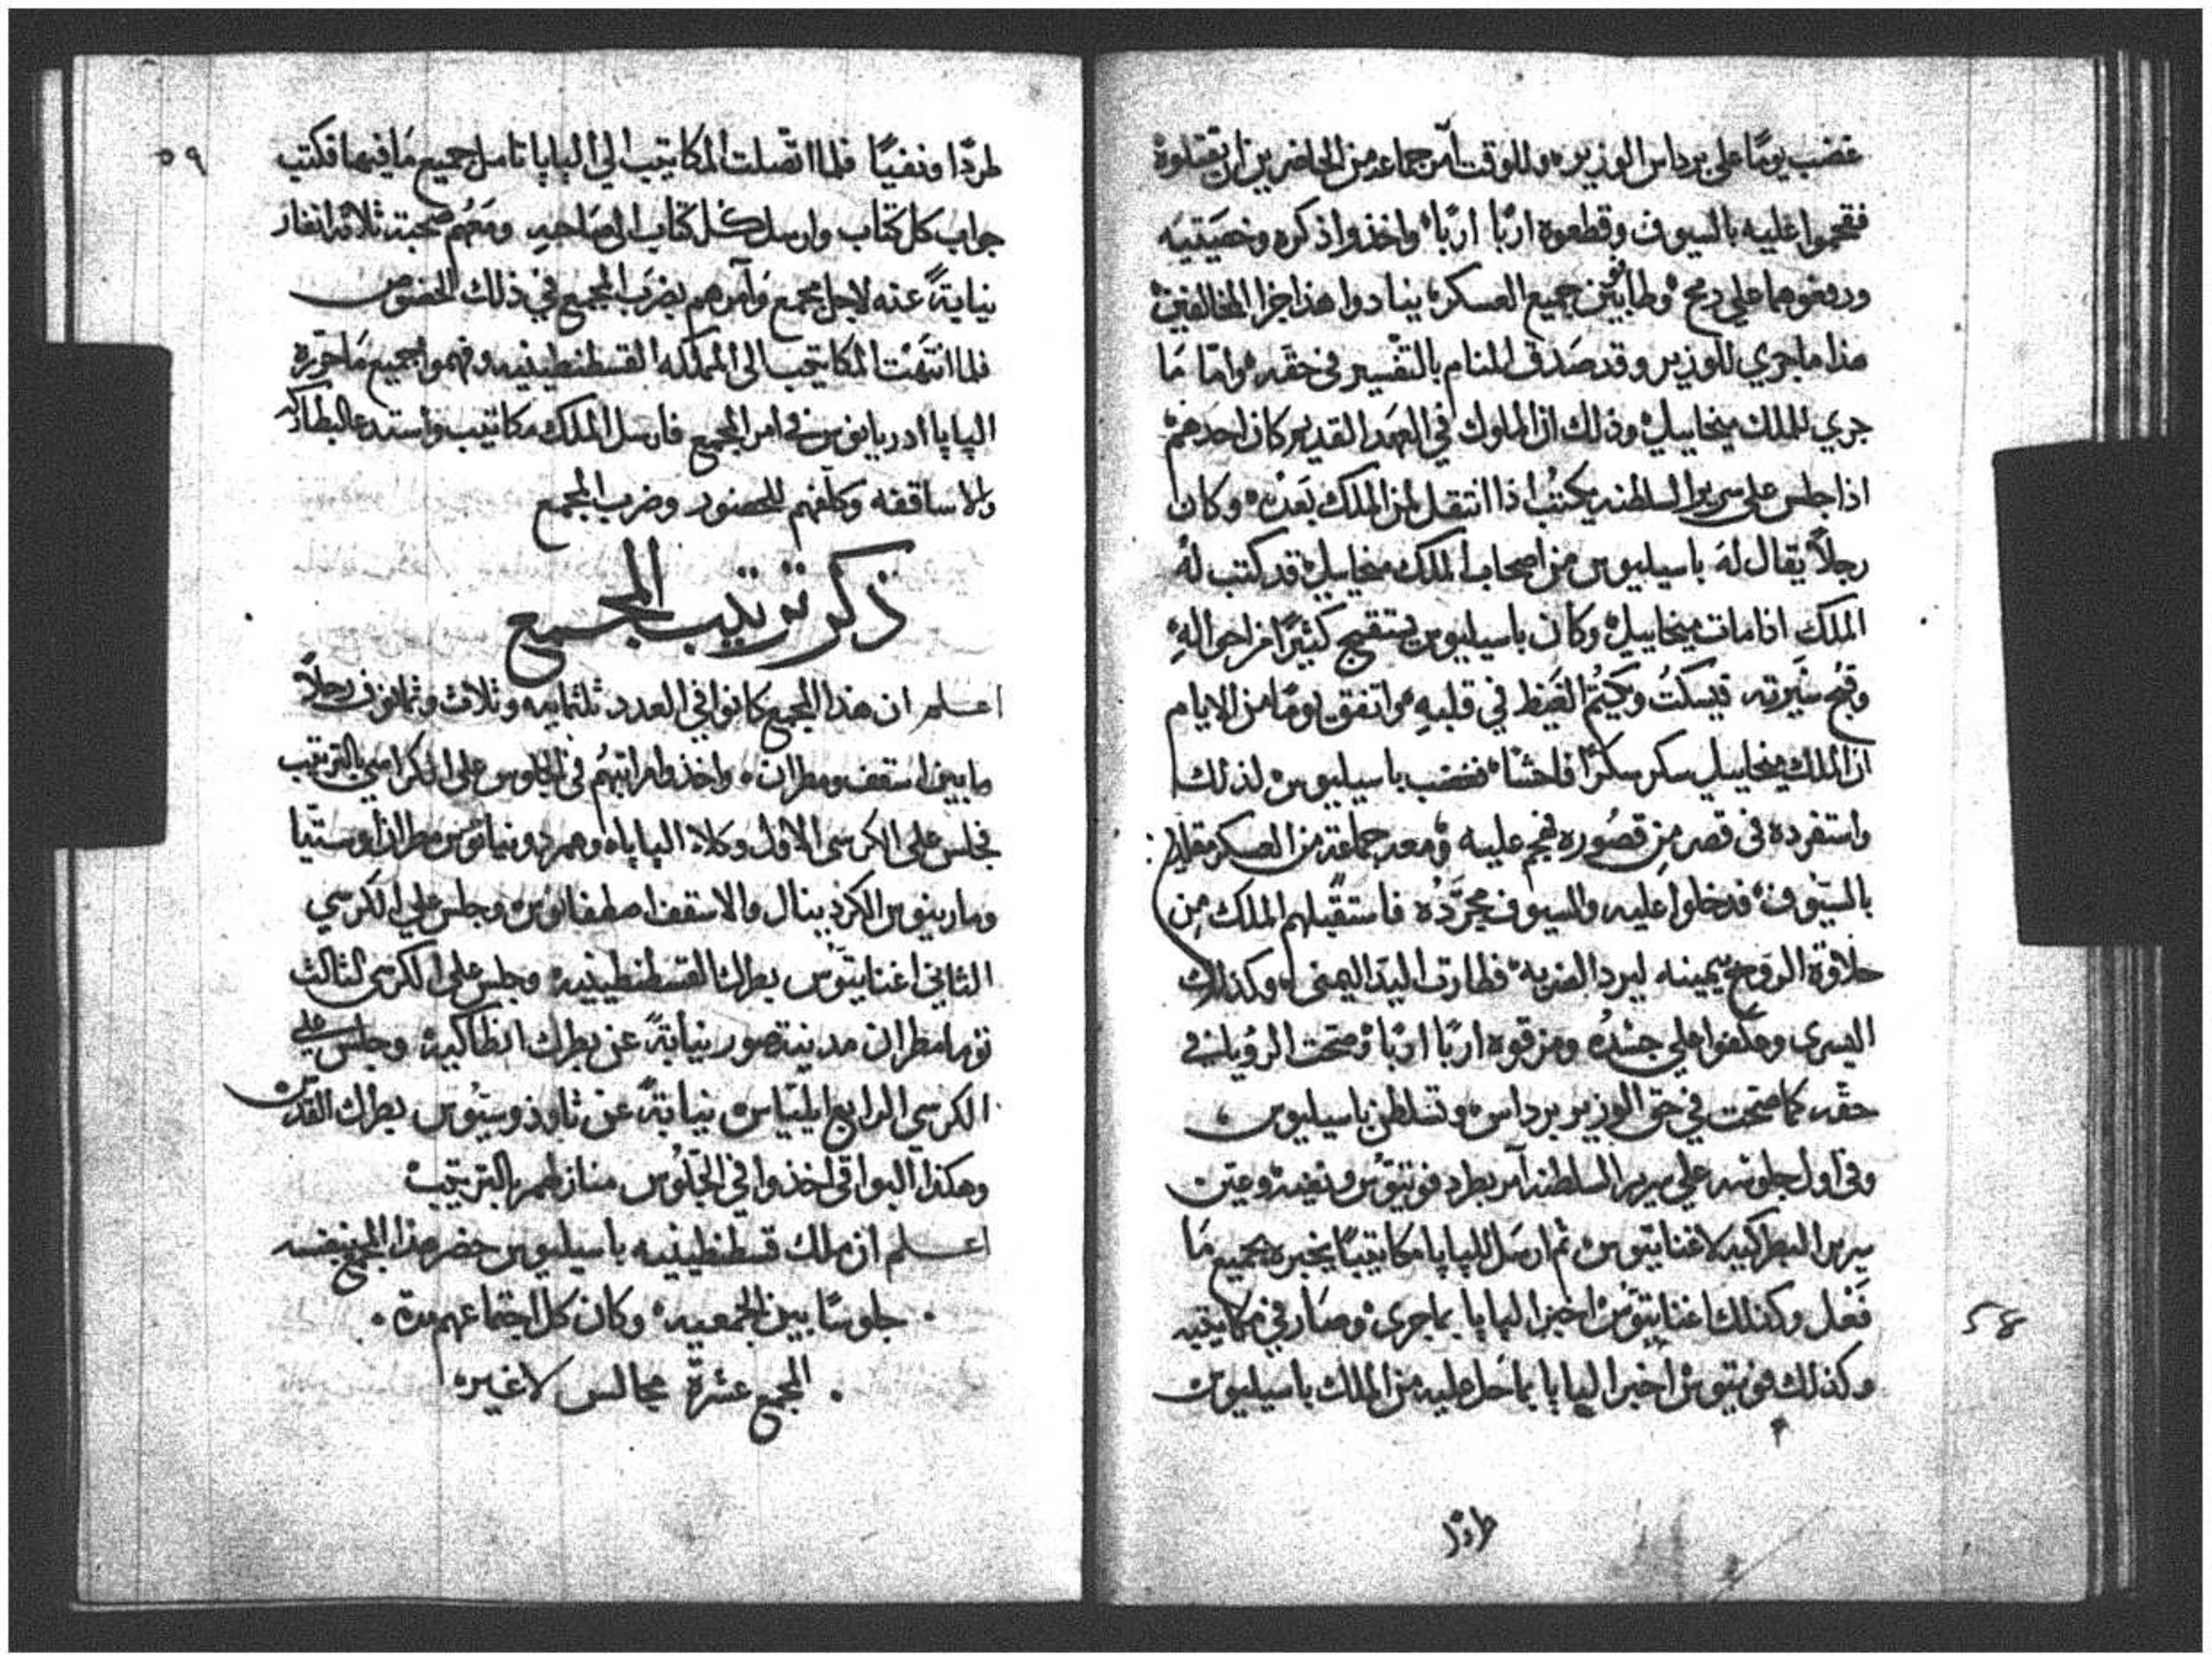 غضب يومًا على برداس الوزير وللوقت آمر جماعه من الحاضرين ان يقتلوه
فهجموا عليه بالسيوف وقطعوه اربًا اربًا واخذوا ذكره وخصيتيه
ورفعوهما علي رمح وطا جميع العسكر ينادوا هذا جزا المخالفين
هذا ما جري للوزير وقد صدق المنام بالتفسير في حقه وامّا مَا
جري للملك ميخاييل وذلك ان الملوك في العهد القديم كان احدهم
اذا جلس علي سرير السلطنه يكتب اذا انتقل لمن الملك بَعده وكان
رجلاً يقال له باسيليوس من اصحاب الملك ميخاييل قد كتب له
الملك اذا مات ميخاييل وكان باسيليوس يستقبح كثيرًا من احواله
وقبح سَيرته فيسكتُ ويكتُم الغيظ في قلبهِ واتفق يومًا من الايام
ان الملك ميخاييل سكر سكرًا فاحشًا فغضب باسيليوس لذلك
واستفرده في قصر من قصُوره فهجم عليه ومعه جماعة من العسكر
بالسيّوف فدخلوا عليه والسيوف مجرّده فاستقبلهم الملك مِن
حلاوة الروح بيمينه ليرد الضربه فطارت اليد اليمنى وكذلك
اليسرى وعكفوا علي جسَدُه ومزقوه اربًا اربًا وصَحت الرؤيا في
حقه كما صحت في حق الوزير برداس وتسلطن باسيليوس
وفي اول جلوسه علي سرير السلطنه آمر بطرد فوتيوس ونفيه وعين
سرير البطركيه لاغناتيوس ثم ارسَل للپاپا مكاتيبًا يخبره بجميع مَا
فَعل وكذلك اغناتيوس اخبر الپاپا بما جرى وصَار في مكاتيبه
وكذلك فوتيوس اخبر الپاپا بما حل عليه من الملك باسيليوس
طردًا
٥٨
٥٩
طردًا ونفيًا فلما اتصلت المكاتيب الي الپاپا تامل جميع مَا فيها فكتب
جواب كل كتاب وارسل كل كتاب الي صَاحبهِ ومَعهُم صحبته ثلاثة انفار
نيابةً عنه لاجل مجمع وَآمرهم بضرَب المجمع في ذلك الخصُوص
فلما انتهَت المكاتيب الى المملكه القسطنطينيه وفهموا جميع مَا حرّره
الپاپا ادريانوس في امر المجمع فارسل الملك مكاتيب واستدعا البطاركه
والاساقفه وكلّفهم للحضور وضرب المجمع
ذكر ترتيب المجمع
اعلم ان هذا المجمع كانوا في العدد ثلثمايه وثلاث وثمانون رجلاً
ما بين اسقف ومطران واخذوا مراتبهُم في الجلوس على الكراسي بالترتيب
فجلس على الكرسي الاول وكلاء الپاپا وهم دونياتوس مطران اوستيا
ومارينوس الكردينال والاسقف اصطفانوس وجلس علي الكرسي
الثاني اغناتيوس بطرك القسطنطينيه وجلس على الكرسي الثالث
توما مطران مدينة صور نيابةً عن بطرك انطاكيه وجلس علي
الكرسي الرابع ايلياس نيابةً عن ثاودوسيوس بطرك القدس
وهكذا البواقي اخذوا في الجلوس منازلهم بالترتيب
اعلم ان ملك قسطنطينيه باسيليوس حضر هذا المجمع بنفسه
جلوسًا بين الجمعيه وكان كل اجتماعهم مدة
المجمع عشرة مجالس لا غير